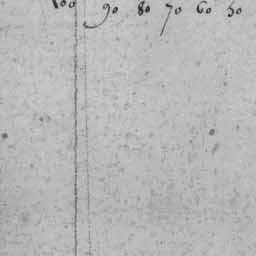 100 90 80 70 60 50